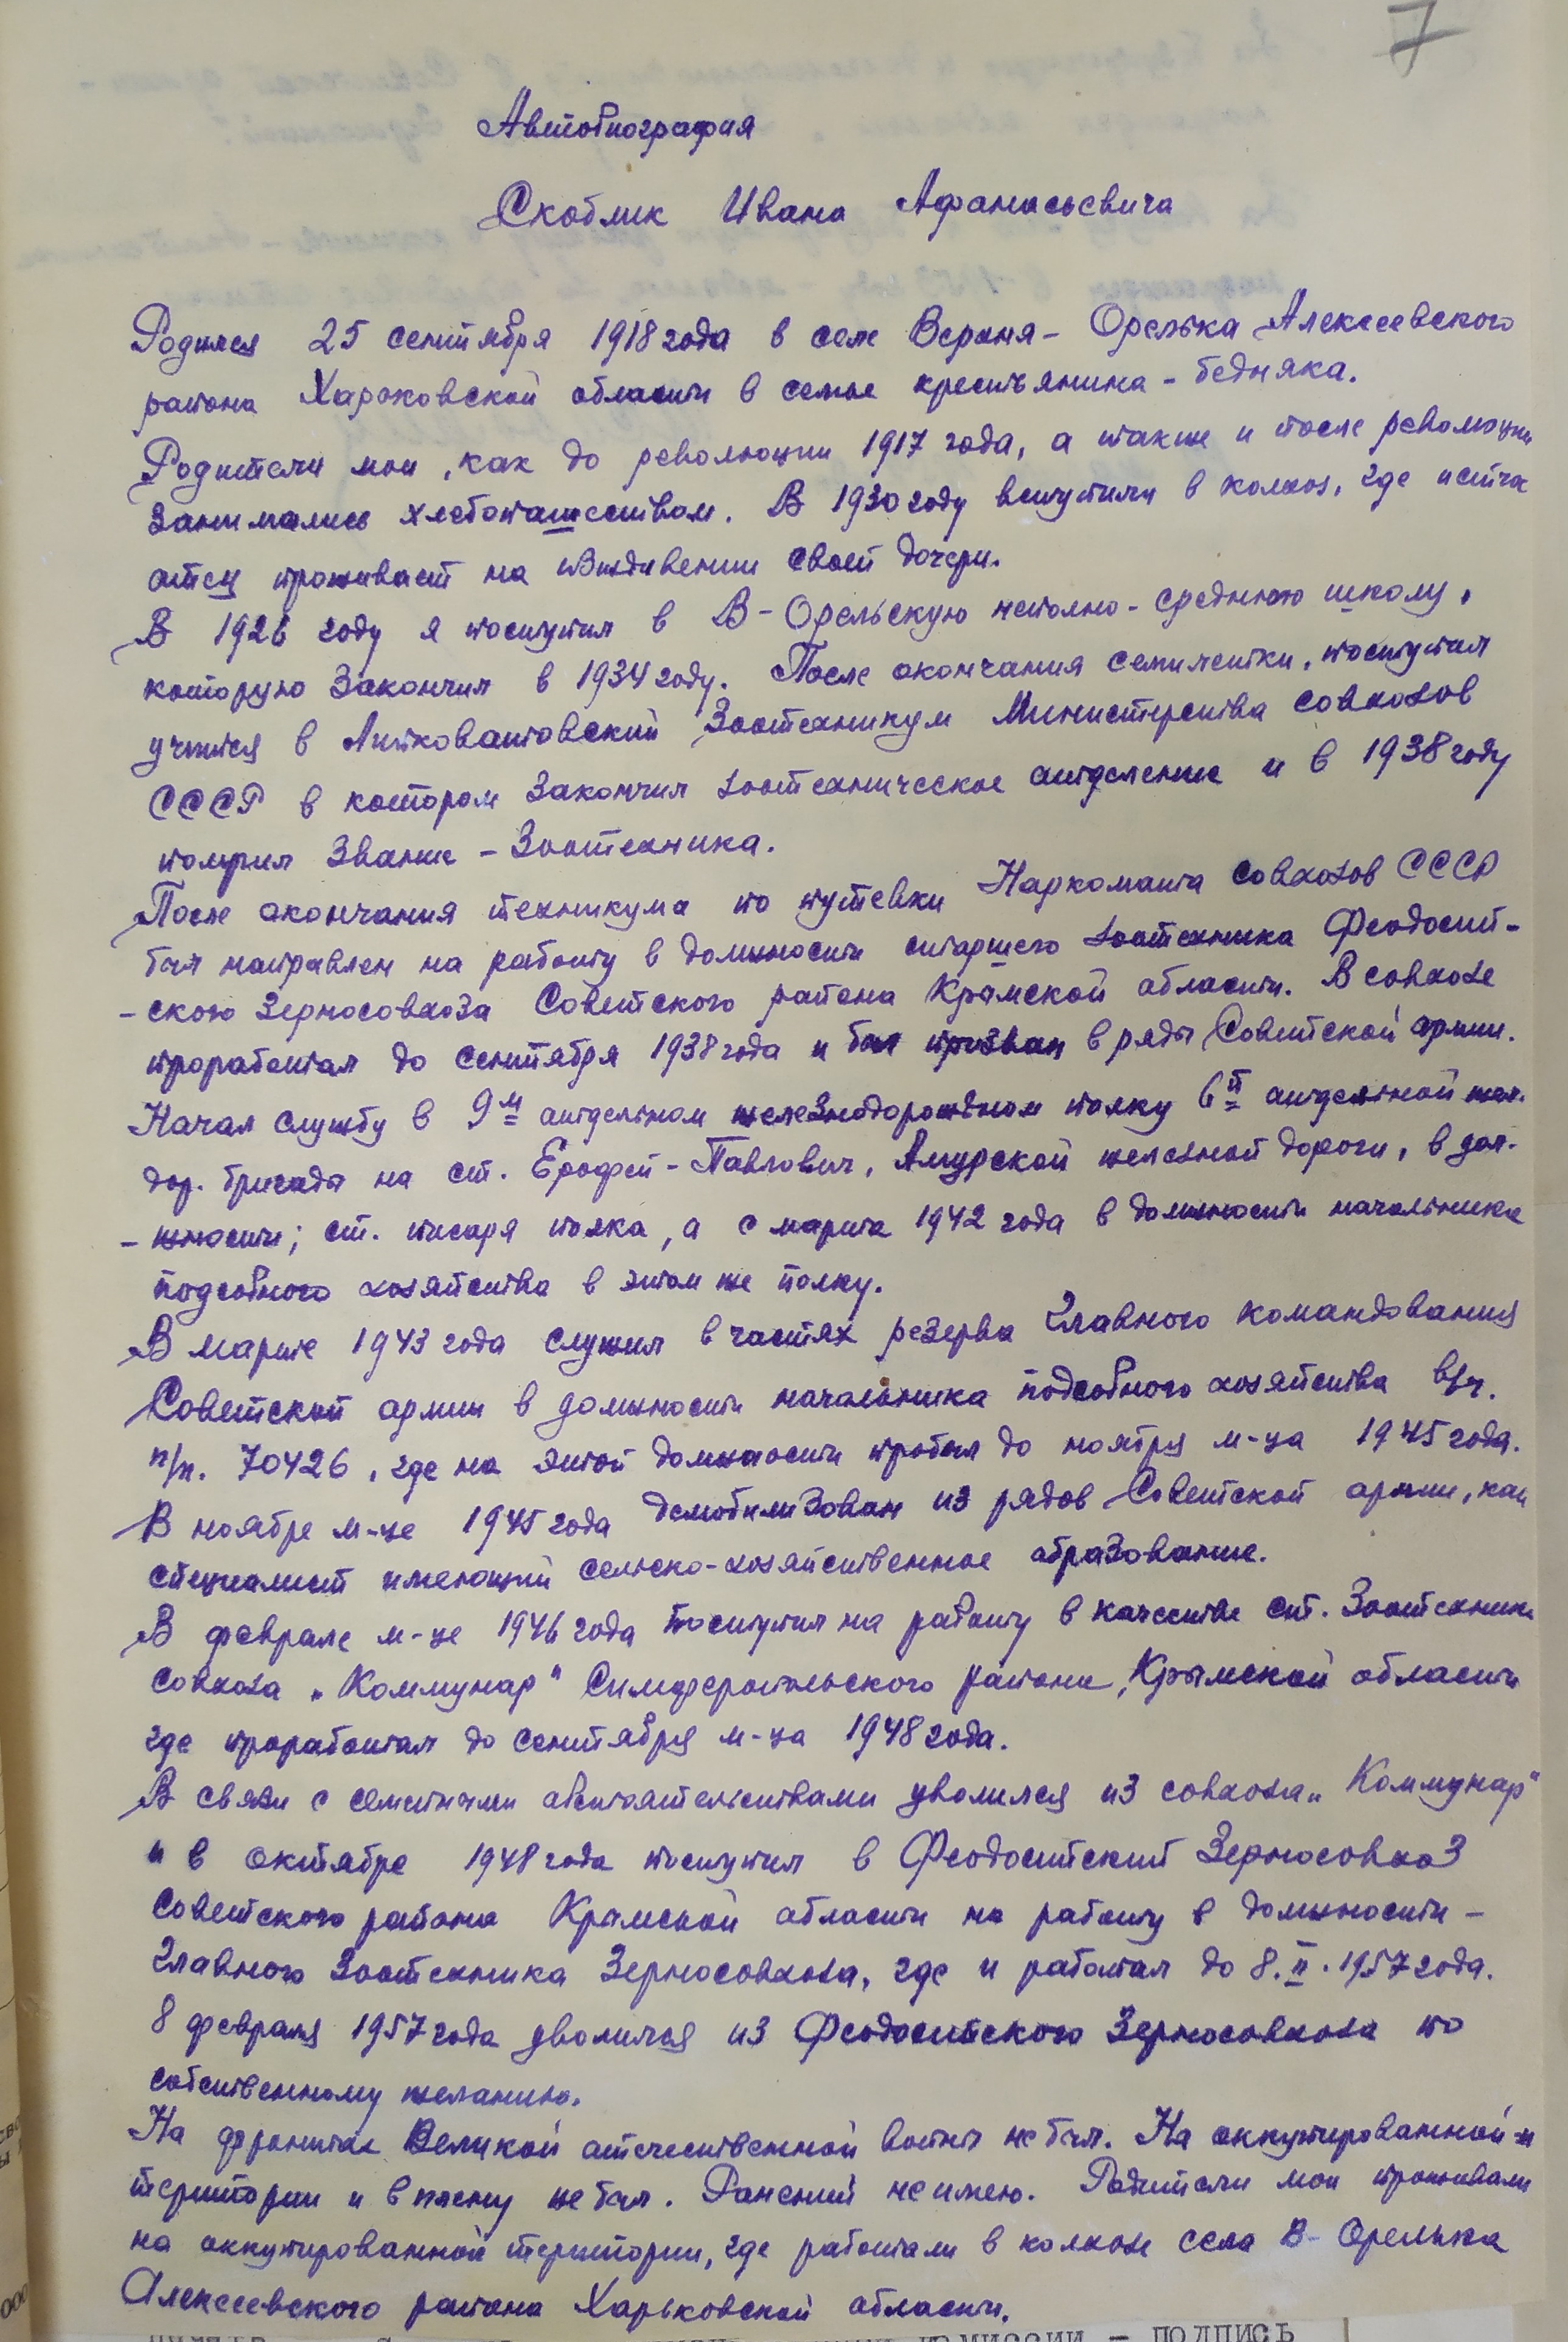 7
Автобиография
Скоблик Ивана Афанасьевича
Родился 25 сентября 1918 года в селе Верхня-Орелька Алексеевского
района Харьковской области в семье крестьянина-бедняка.
Родители мои, как до революции 1917 года, а также и после революции
занимались хлебопашеством. В 1930 году вступили в колхоз, где и сейчас
отец проживает на иждивении своей дочери.
В 1926 году я поступил в В-Орельскую неполно-среднюю школу,
которую закончил в 1934 году. После окончания семилетки, поступил
учится в Липковатовский Зоотехникум Министерства совхозов
СССР в котором закончил зоотехническое отделение и в 1938 году
получил звание - Зоотехника.
После окончания техникума по путевки Наркомата совхозов СССР
был направлен на работу в должности старшего зоотехника Феодосий-
-ского Зерносовхоза Советского района Крымской области. В совхозе
проработал до сентября 1938 года и был призван в ряды Советской армии.
Начал службу в 9м отдельном железнодорожном полку 6й отдельной жел.
дор. бригады на ст. Ерофей-Павлович, Амурской железной дороги, в дол-
-жности; ст. писаря полка, а с марта 1942 года в должности начальника
подсобного хозяйства в этом же полку.
В марте 1943 года служил в частях резерва Главного командования
Советской армии в должности начальника подсобного хозяйства в/ч.
п/п. 70426, где на этой должности пробыл до ноября м-ца 1945 года.
В ноябре м-це 1945 года демобилизован из рядов Советской армии, как
специалист имеющий сельско-хозяйственное образование.
В феврале м-це 1946 года поступил на работу в качестве ст. Зоотехника
совхоза „Коммунар" Симферопольского района, Крымской области
где проработал до сентября м-ца 1948 года.
В связи с семейными обстоятельствами уволился из совхоза „Коммунар"
и в октябре 1948 года поступил в Феодосийский Зерносовхоз
Советского района Крымской области на работу в должности -
Главного Зоотехника Зерносовхоза, где и работал до 8.II.1957 года.
8 февраля 1957 года уволился из Феодосийского Зерносовхоза по
собственному желанию.
На фронтах Великой отечественной войны не был. На оккупированной
территории и в плену не был. Ранений не имею. Родители мои проживали
на оккупированной территории, где работали в колхозе села В-Орелька
Алексеевского района Харьковской области.
– подпись